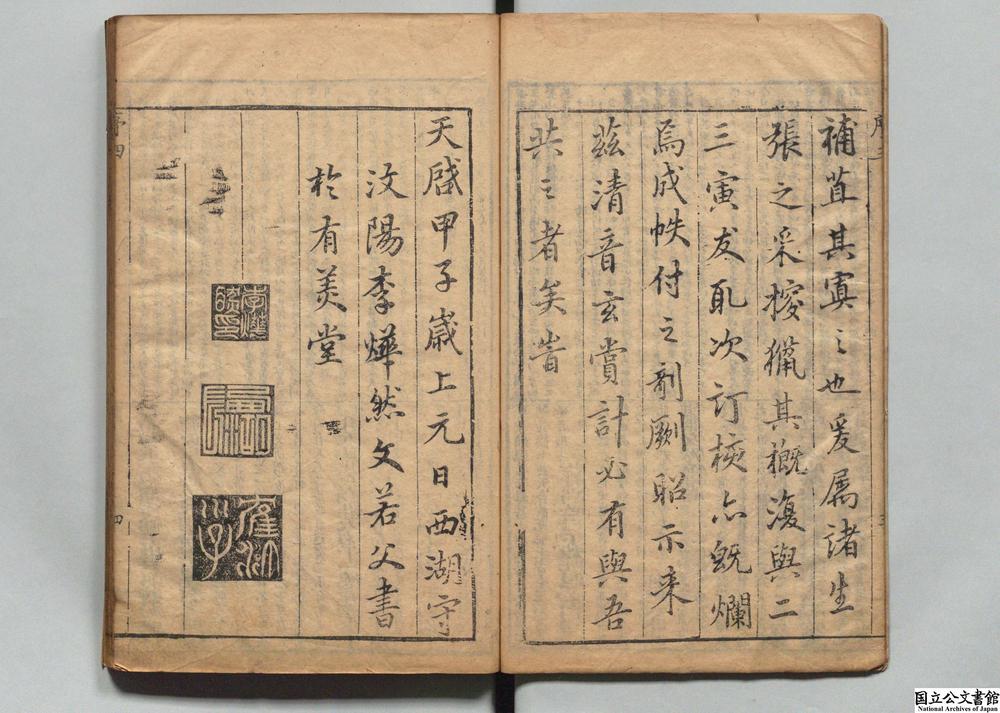 補苴其寘之也爰屬諸生
張之采搜獵其概復與二
三寅友互次訂核亦既爛
焉成帙付之剞劂昭示来
茲清音玄賞計必有與吾
共之者矣峕
天啓甲子歲上元日西湖守
汶陽李燁然文若父書
於有美堂
序四
四
国立公文書館
National Archives of Japan